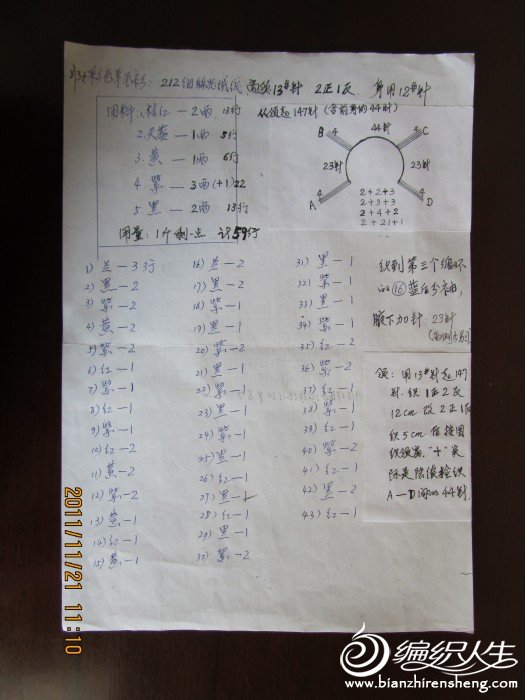 212细绒羊绒线 高领13#针 2正1反 身用12#针
用料: 1.桔红—2两 13行
2.天蓝—1两 8行
3.黄—1两 6行
4.紫—3两(+1) 22
5.黑—2两 13行
用量: 1斤剩一点 计59行
从领起147针(含前身的44针)
44针
B 4
4 C
23针
23针
4 A
4 D
2+2+3
2+3+3
2+4+2
2+21+1
1) 兰—3行
2) 黑—2
3) 紫—2
4) 黄—2
5) 紫—2
6) 红—1
7) 紫—1
8) 红—1
9) 紫—1
10) 红—2
11) 黄—2
12) 紫—2
13) 黄—1
14) 红—1
15) 黄—1
16) 兰—2
17) 黑—2
18) 紫—1
19) 黑—1
20) 紫—2
21) 黑—1
22) 紫—1
23) 黑—1
24) 紫—1
25) 黑—1
26) 红—1
27) 黑—1
28) 红—1
29) 黑—1
30) 紫—2
31) 黑—1
32) 紫—1
33) 黑—1
34) 紫—1
35) 红—2
36) 紫—2
37) 红—1
38) 紫—1
39) 红—1
40) 紫—2
41) 红—1
42) 黑—2
43) 红—1
织到第三个循环
的⑯蓝后分袖,
腋下加针: 23针
领: 用13#针起147
针. 织1正2反
12cm 改2正1反
织5cm 后按图
织领窝. "+"实
A—D间的44针.
2011/11/21 11:10
编织人生
www.bianzhirensheng.com